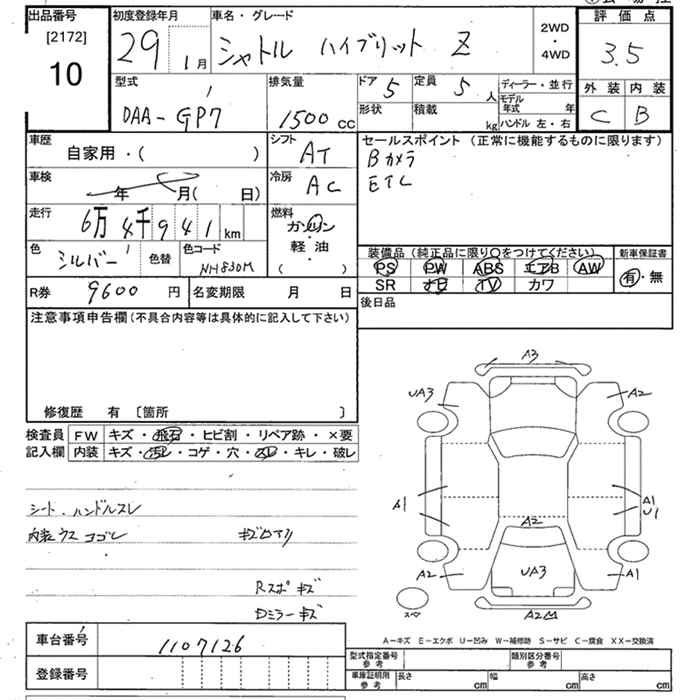 出品番号
[2172]
10
初度登録年月
29 1月
車名・グレード
シャトル ハイブリット Z
2WD
・
4WD
評価点
3.5
外装 内装
C B
型式
DAA-GP7
排気量
1500 cc
ドア 5
定員 5 人
形状
積載 kg
ディーラー・並行
モデル年式 年
ハンドル 左・右
車歴
自家用・( )
シフト
AT
セールスポイント (正常に機能するものに限ります)
Bカメラ
ETC
車検
年 月( 日)
冷房
AC
走行
6万4千941 km
燃料
ガソリン
軽・油
( )
色
シルバー
色替
色コード
NH830M
装備品 (純正品に限り○をつけてください)
PS PW ABS エアB AW
SR ナビ TV カワ
新車保証書
有・無
R券 9600 円
名変期限 月 日
後日品
注意事項申告欄 (不具合内容等は具体的に記入して下さい)
修復歴 有 〔箇所 〕
検査員記入欄
FW キズ・飛石・ヒビ割・リペア跡・×要
内装 キズ・汚レ・コゲ・穴・スレ・キレ・破レ
シート・ハンドルスレ
内装ウスヨゴレ
Rスポキズ
Dミラーキズ
A3
UA3
A2
A1
A1
U1
A2
UA3
A2
A1
スペ
A2
A-キズ E-エクボ U-凹み W-補修跡 S-サビ C-腐食 XX-交換済
車台番号 1107126
登録番号
型式指定番号 参考
類別区分番号 参考
車庫証明用 参考
長さ cm
幅 cm
高さ cm